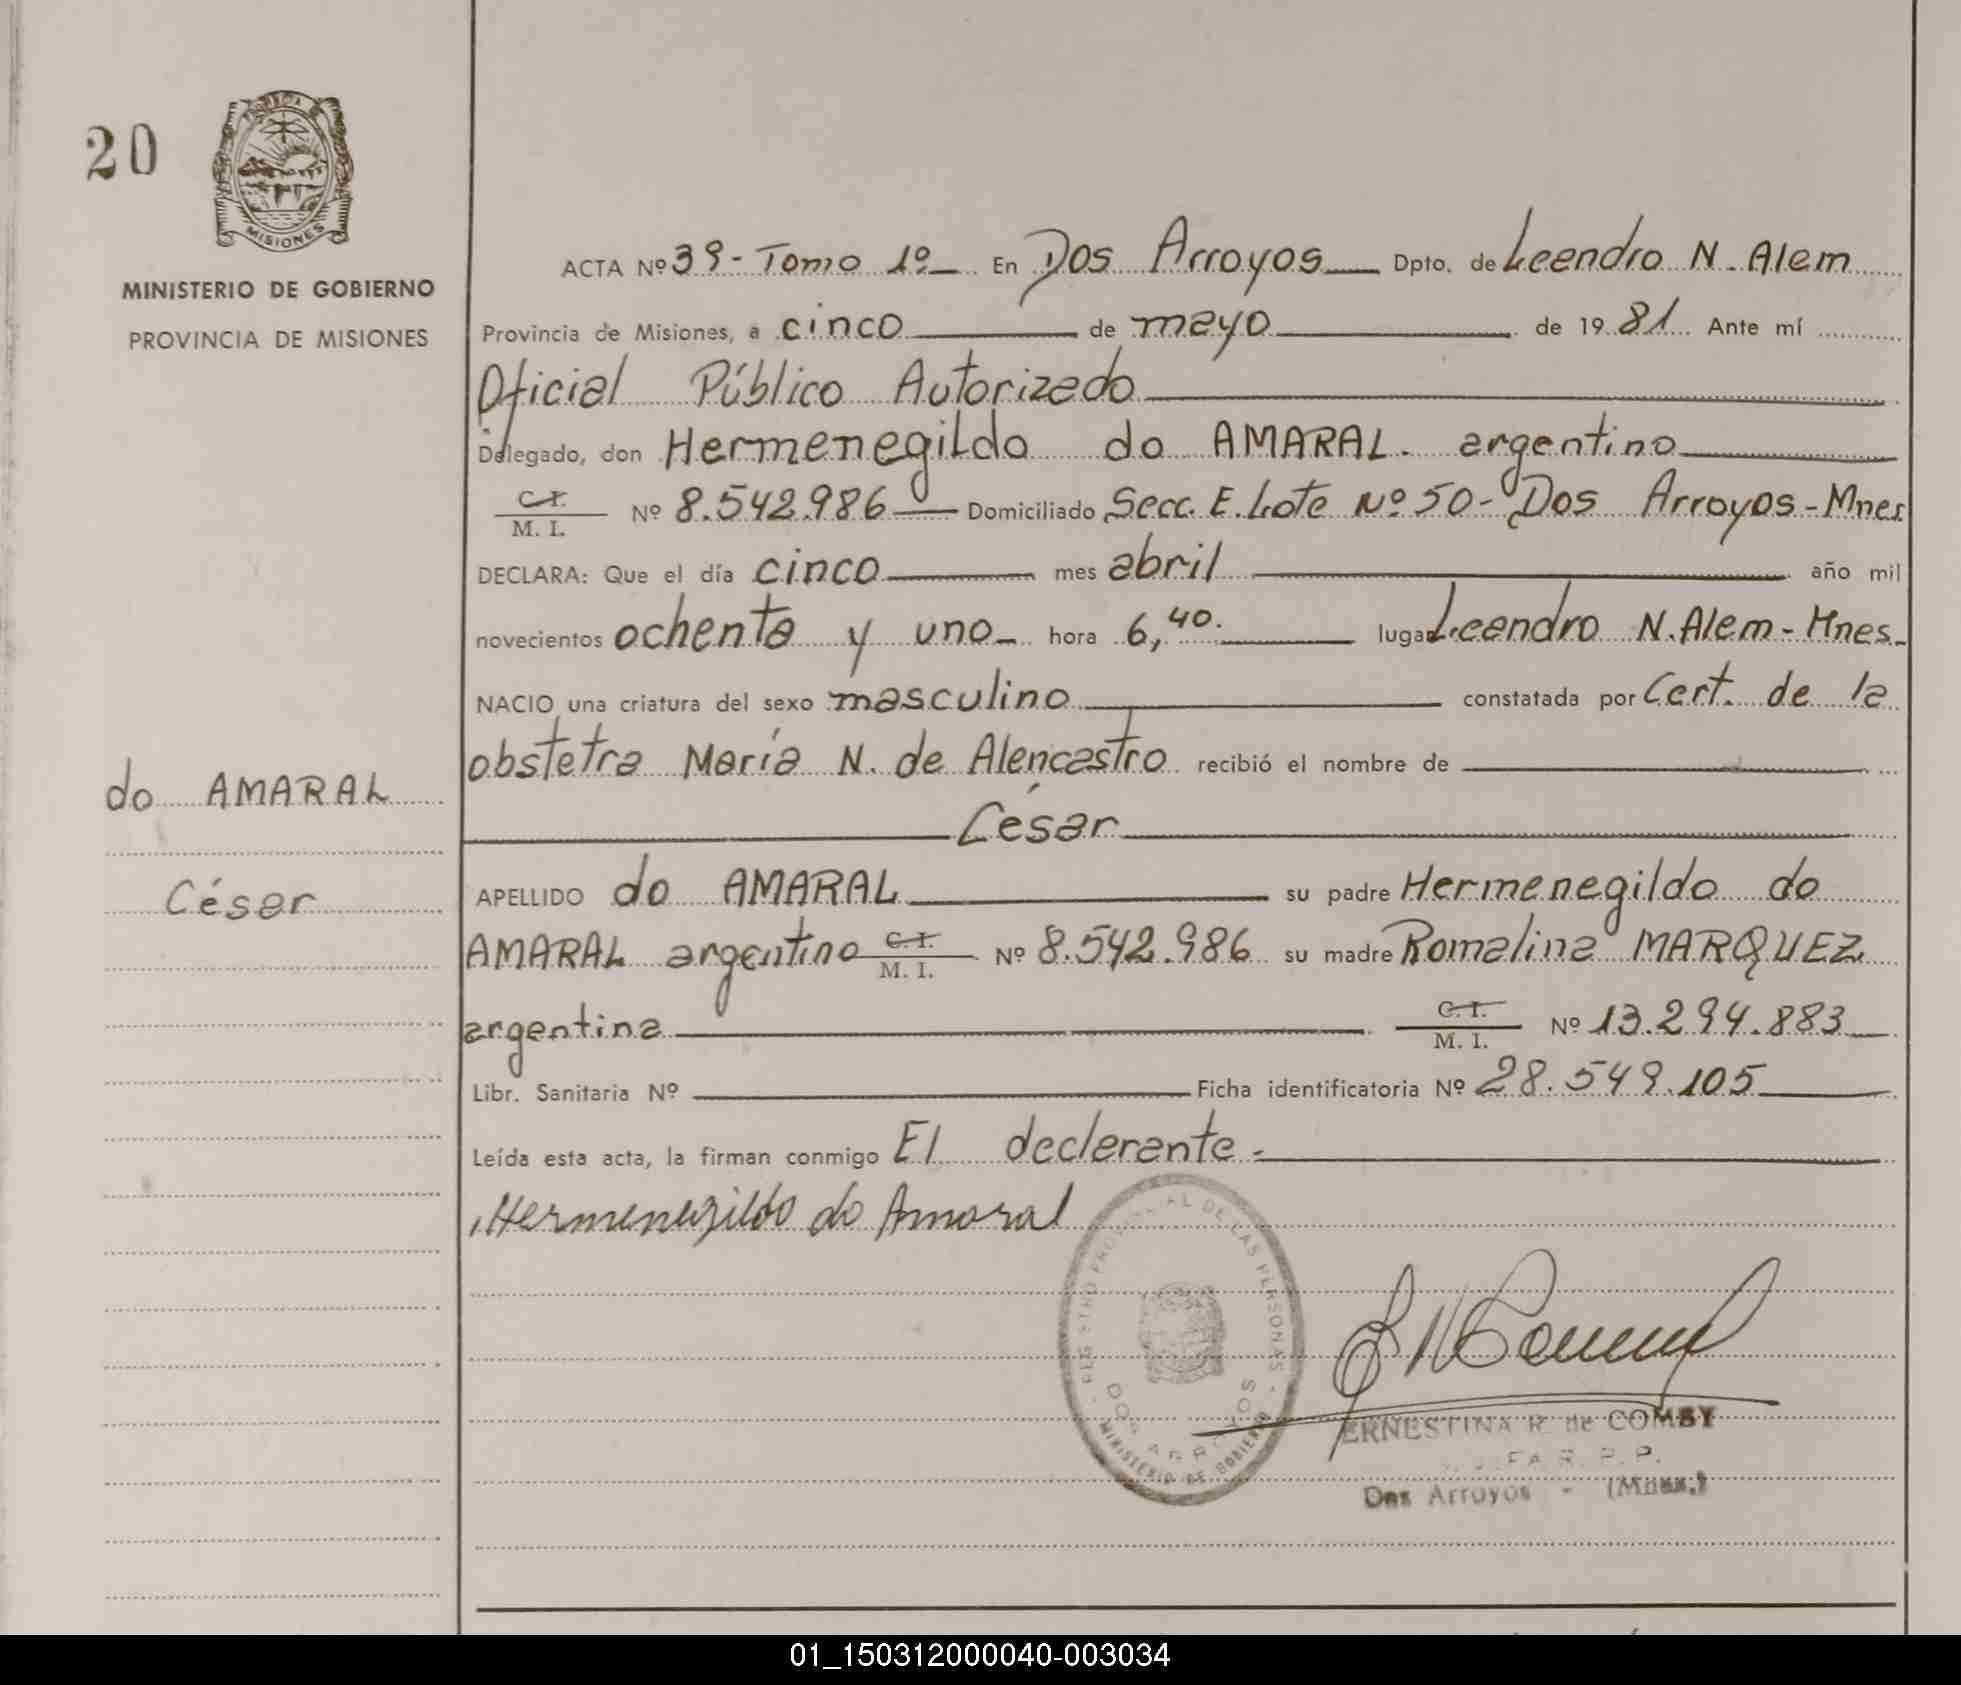 20
MISIONES
MINISTERIO DE GOBIERNO
PROVINCIA DE MISIONES
ACTA Nº 39 - Tomo 1º En Dos Arroyos Dpto. de Leandro N. Alem
Provincia de Misiones, a cinco de mayo de 1981 Ante mí
Oficial Público Autorizado
Delegado, don Hermenegildo do AMARAL. argentino
C. I.
M. I. Nº 8.542.986 Domiciliado Secc. E. Lote Nº 50 - Dos Arroyos - Mnes
DECLARA: Que el día cinco mes abril año mil
novecientos ochenta y uno hora 6,40. lugar Leandro N. Alem - Mnes.
NACIO una criatura del sexo masculino constatada por Cert. de la
obstetra María N. de Alencastro recibió el nombre de
César
APELLIDO do AMARAL su padre Hermenegildo do
AMARAL argentino C. I.
M. I. Nº 8.542.986 su madre Romalina MARQUEZ
argentina C. I.
M. I. Nº 13.294.883
Libr. Sanitaria Nº Ficha identificatoria Nº 28.549.105
Leída esta acta, la firman conmigo El declarante.
Hermenegildo do Amaral
do AMARAL
César
REGISTRO PROVINCIAL DE LAS PERSONAS
DOS ARROYOS
MINISTERIO DE GOBIERNO
ERNESTINA R. de COMBY
R. P. P.
Dos Arroyos - (Mnes.)
01_150312000040-003034